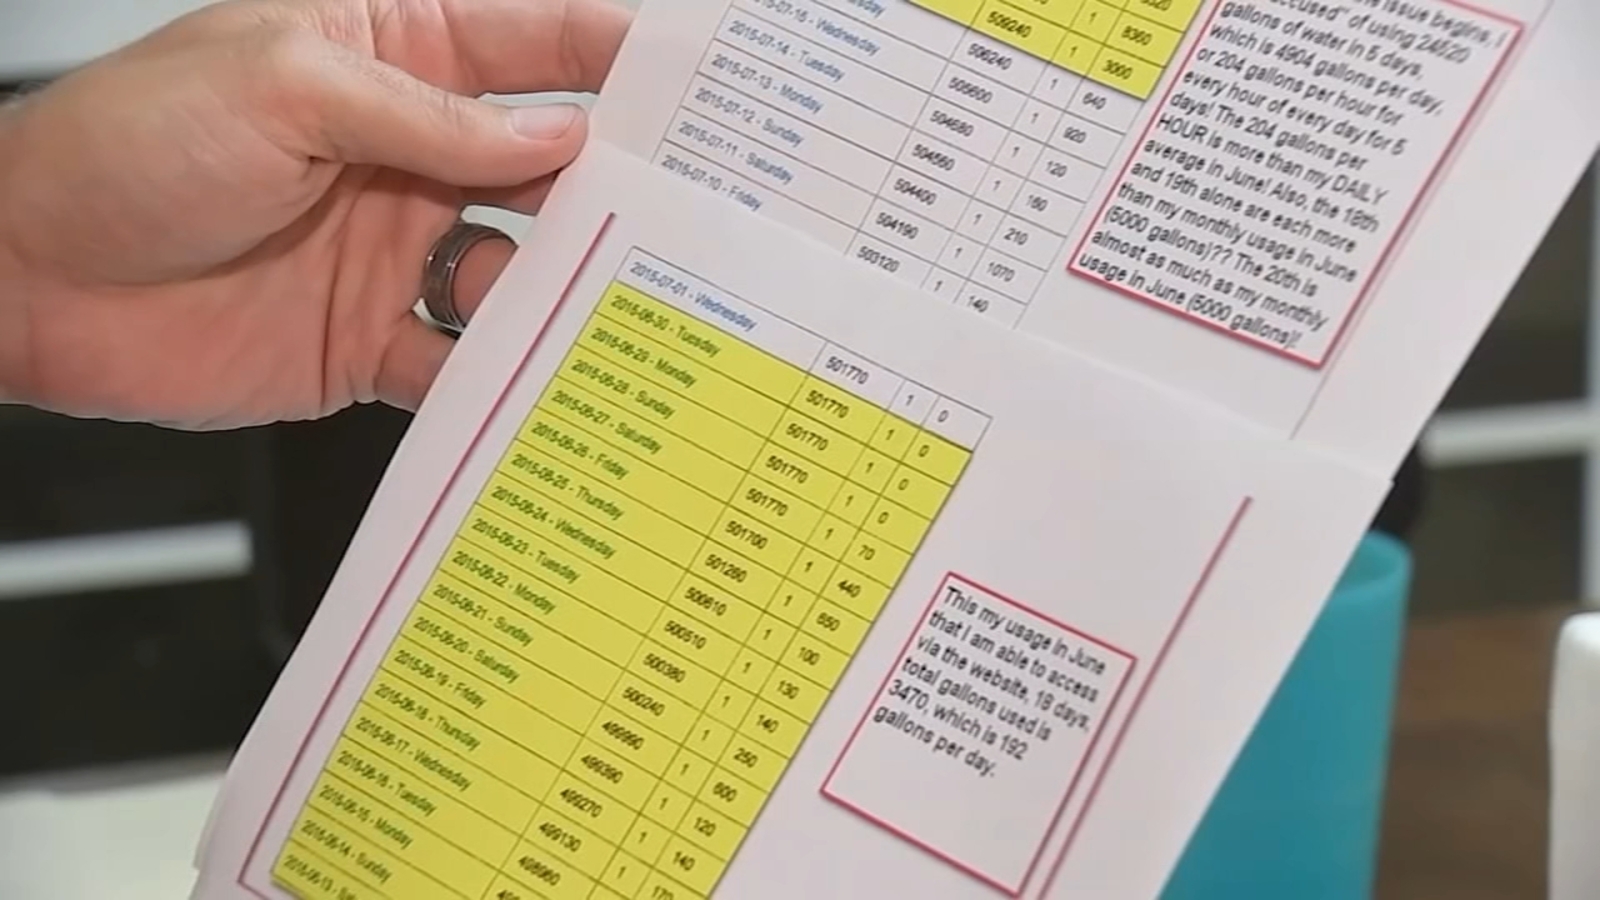 8360
509240 1 3000
506240 1 640
2015-07-15 - Wednesday 505600 1 920
2015-07-14 - Tuesday 504680 1 120
2015-07-13 - Monday 504560 1 160
2015-07-12 - Sunday 504400 1 210
2015-07-11 - Saturday 504190 1 1070
2015-07-10 - Friday 503120 1 140
issue begins, I
of using 24520
gallons of water in 5 days,
which is 4904 gallons per day,
or 204 gallons per hour for
every hour of every day for 5
days! The 204 gallons per
HOUR is more than my DAILY
average in June! Also, the 18th
and 19th alone are each more
than my monthly usage in June
(5000 gallons)?? The 20th is
almost as much as my monthly
usage in June (5000 gallons)!
2015-07-01 - Wednesday 501770 1 0
2015-06-30 - Tuesday 501770 1 0
2015-06-29 - Monday 501770 1 0
2015-06-28 - Sunday 501770 1 0
2015-06-27 - Saturday 501770 1 70
2015-06-26 - Friday 501700 1 440
2015-06-25 - Thursday 501260 1 650
2015-06-24 - Wednesday 500610 1 100
2015-06-23 - Tuesday 500510 1 130
2015-06-22 - Monday 500380 1 140
2015-06-21 - Sunday 500240 1 250
2015-06-20 - Saturday 499990 1 600
2015-06-19 - Friday 499390 1 120
2015-06-18 - Thursday 499270 1 140
2015-06-17 - Wednesday 499130 1 170
2015-06-16 - Tuesday 498960
2015-06-15 - Monday
2015-06-14 - Sunday
2015-06-13 -
This my usage in June
that I am able to access
via the website, 18 days,
total gallons used is
3470, which is 192
gallons per day.